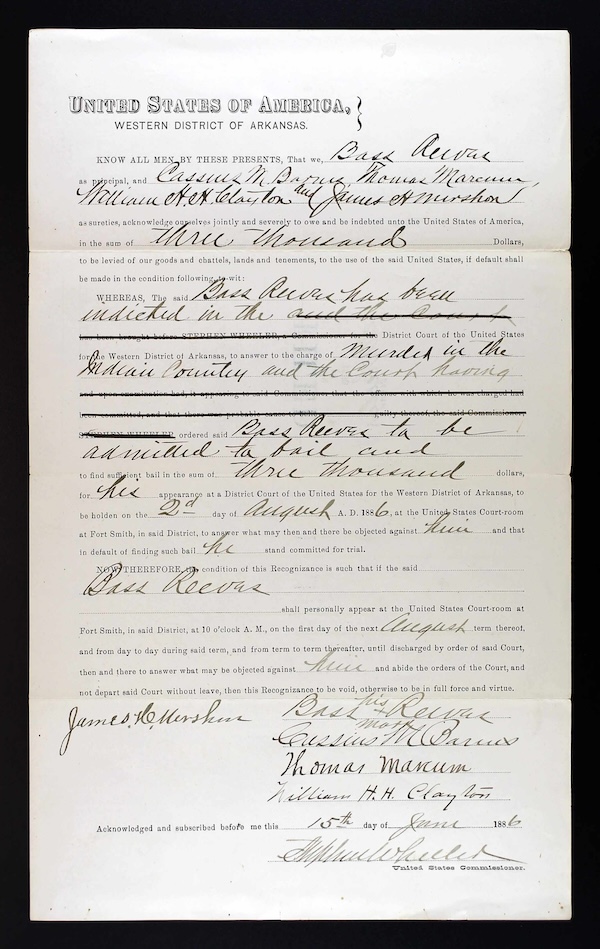 UNITED STATES OF AMERICA,
WESTERN DISTRICT OF ARKANSAS.
KNOW ALL MEN BY THESE PRESENTS, That we, Bass Reeves
as principal, and Cassius M. Barnes, Thomas Marcum,
William H. H. Clayton and James H Mershon
as sureties, acknowledge ourselves jointly and severely to owe and be indebted unto the United States of America,
in the sum of three thousand Dollars,
to be levied of our goods and chattels, lands and tenements, to the use of the said United States, if default shall
be made in the condition following, to-wit:
WHEREAS, The said Bass Reeves has been
indicted in the and the Court
brought before STEPHEN WHEELER, a Commissioner for the District Court of the United States
for the Western District of Arkansas, to answer to the charge of Murder in the
Indian Country and the Court having
and upon examination had, it appearing to said Commissioner, that the offense with which he was charged had
been committed, and that there was probable cause to believe guilty thereof, the said Commissioner,
STEPHEN WHEELER, ordered said Bass Reeves to be
admitted to bail and
to find sufficient bail in the sum of three thousand dollars,
for his appearance at a District Court of the United States for the Western District of Arkansas, to
be holden on the 2d day of August A. D. 1886, at the United States Court-room
at Fort Smith, in said District, to answer what may then and there be objected against him and that
in default of finding such bail he stand committed for trial.
NOW THEREFORE, the condition of this Recognizance is such that if the said
Bass Reeves
shall personally appear at the United States Court-room at
Fort Smith, in said District, at 10 o'clock A. M., on the first day of the next August term thereof,
and from day to day during said term, and from term to term thereafter, until discharged by order of said Court,
then and there to answer what may be objected against him and abide the orders of the Court, and
not depart said Court without leave, then this Recognizance to be void, otherwise to be in full force and virtue.
James H. Mershon
Bass his x mark Reeves
Cassius M Barnes
Thomas Marcum
William H. H. Clayton
Acknowledged and subscribed before me this 15th day of June 1886
Stephen Wheeler
United States Commissioner.